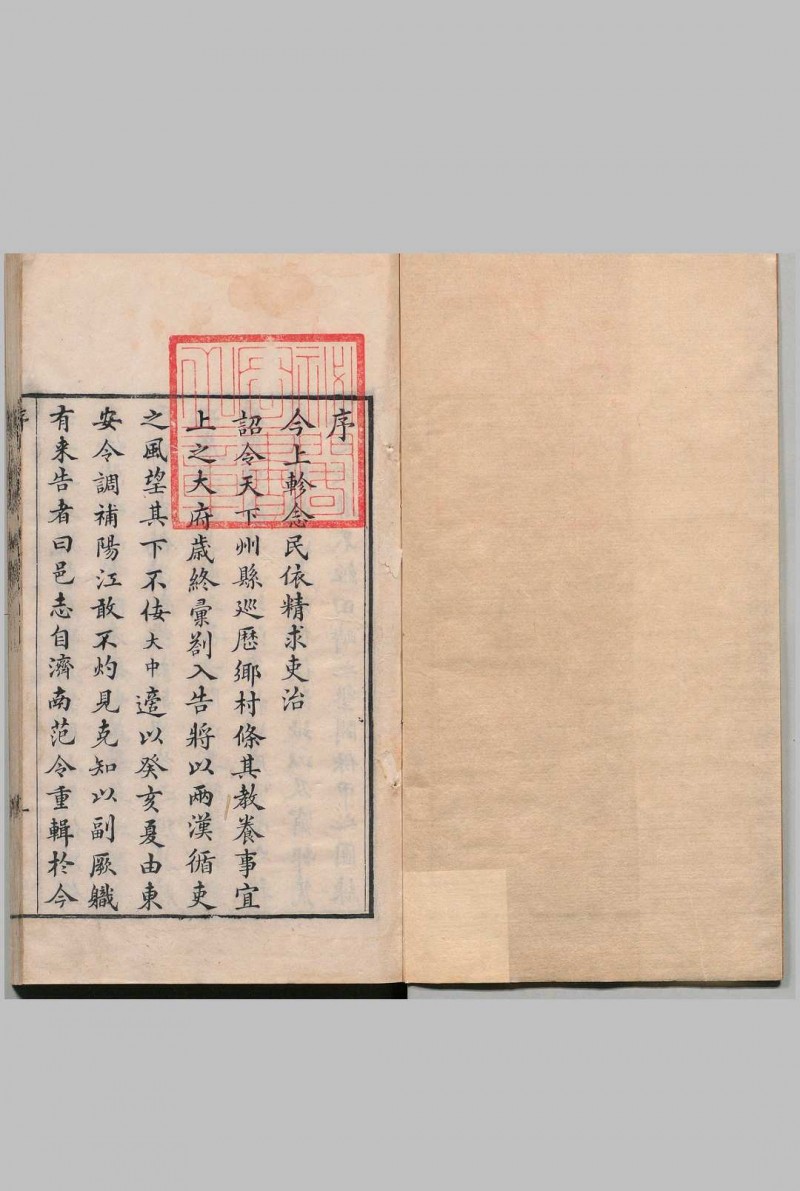 序
今上軫念民依精求吏治
詔令天下州縣巡歷鄉村條其教養事宜
上之大府歲終彙劄入告將以兩漢循吏
之風望其下不侫大中遼以癸亥夏由東
安令調補陽江敢不灼見克知以副厥職
有来告者曰邑志自濟南范令重輯於今
序
一